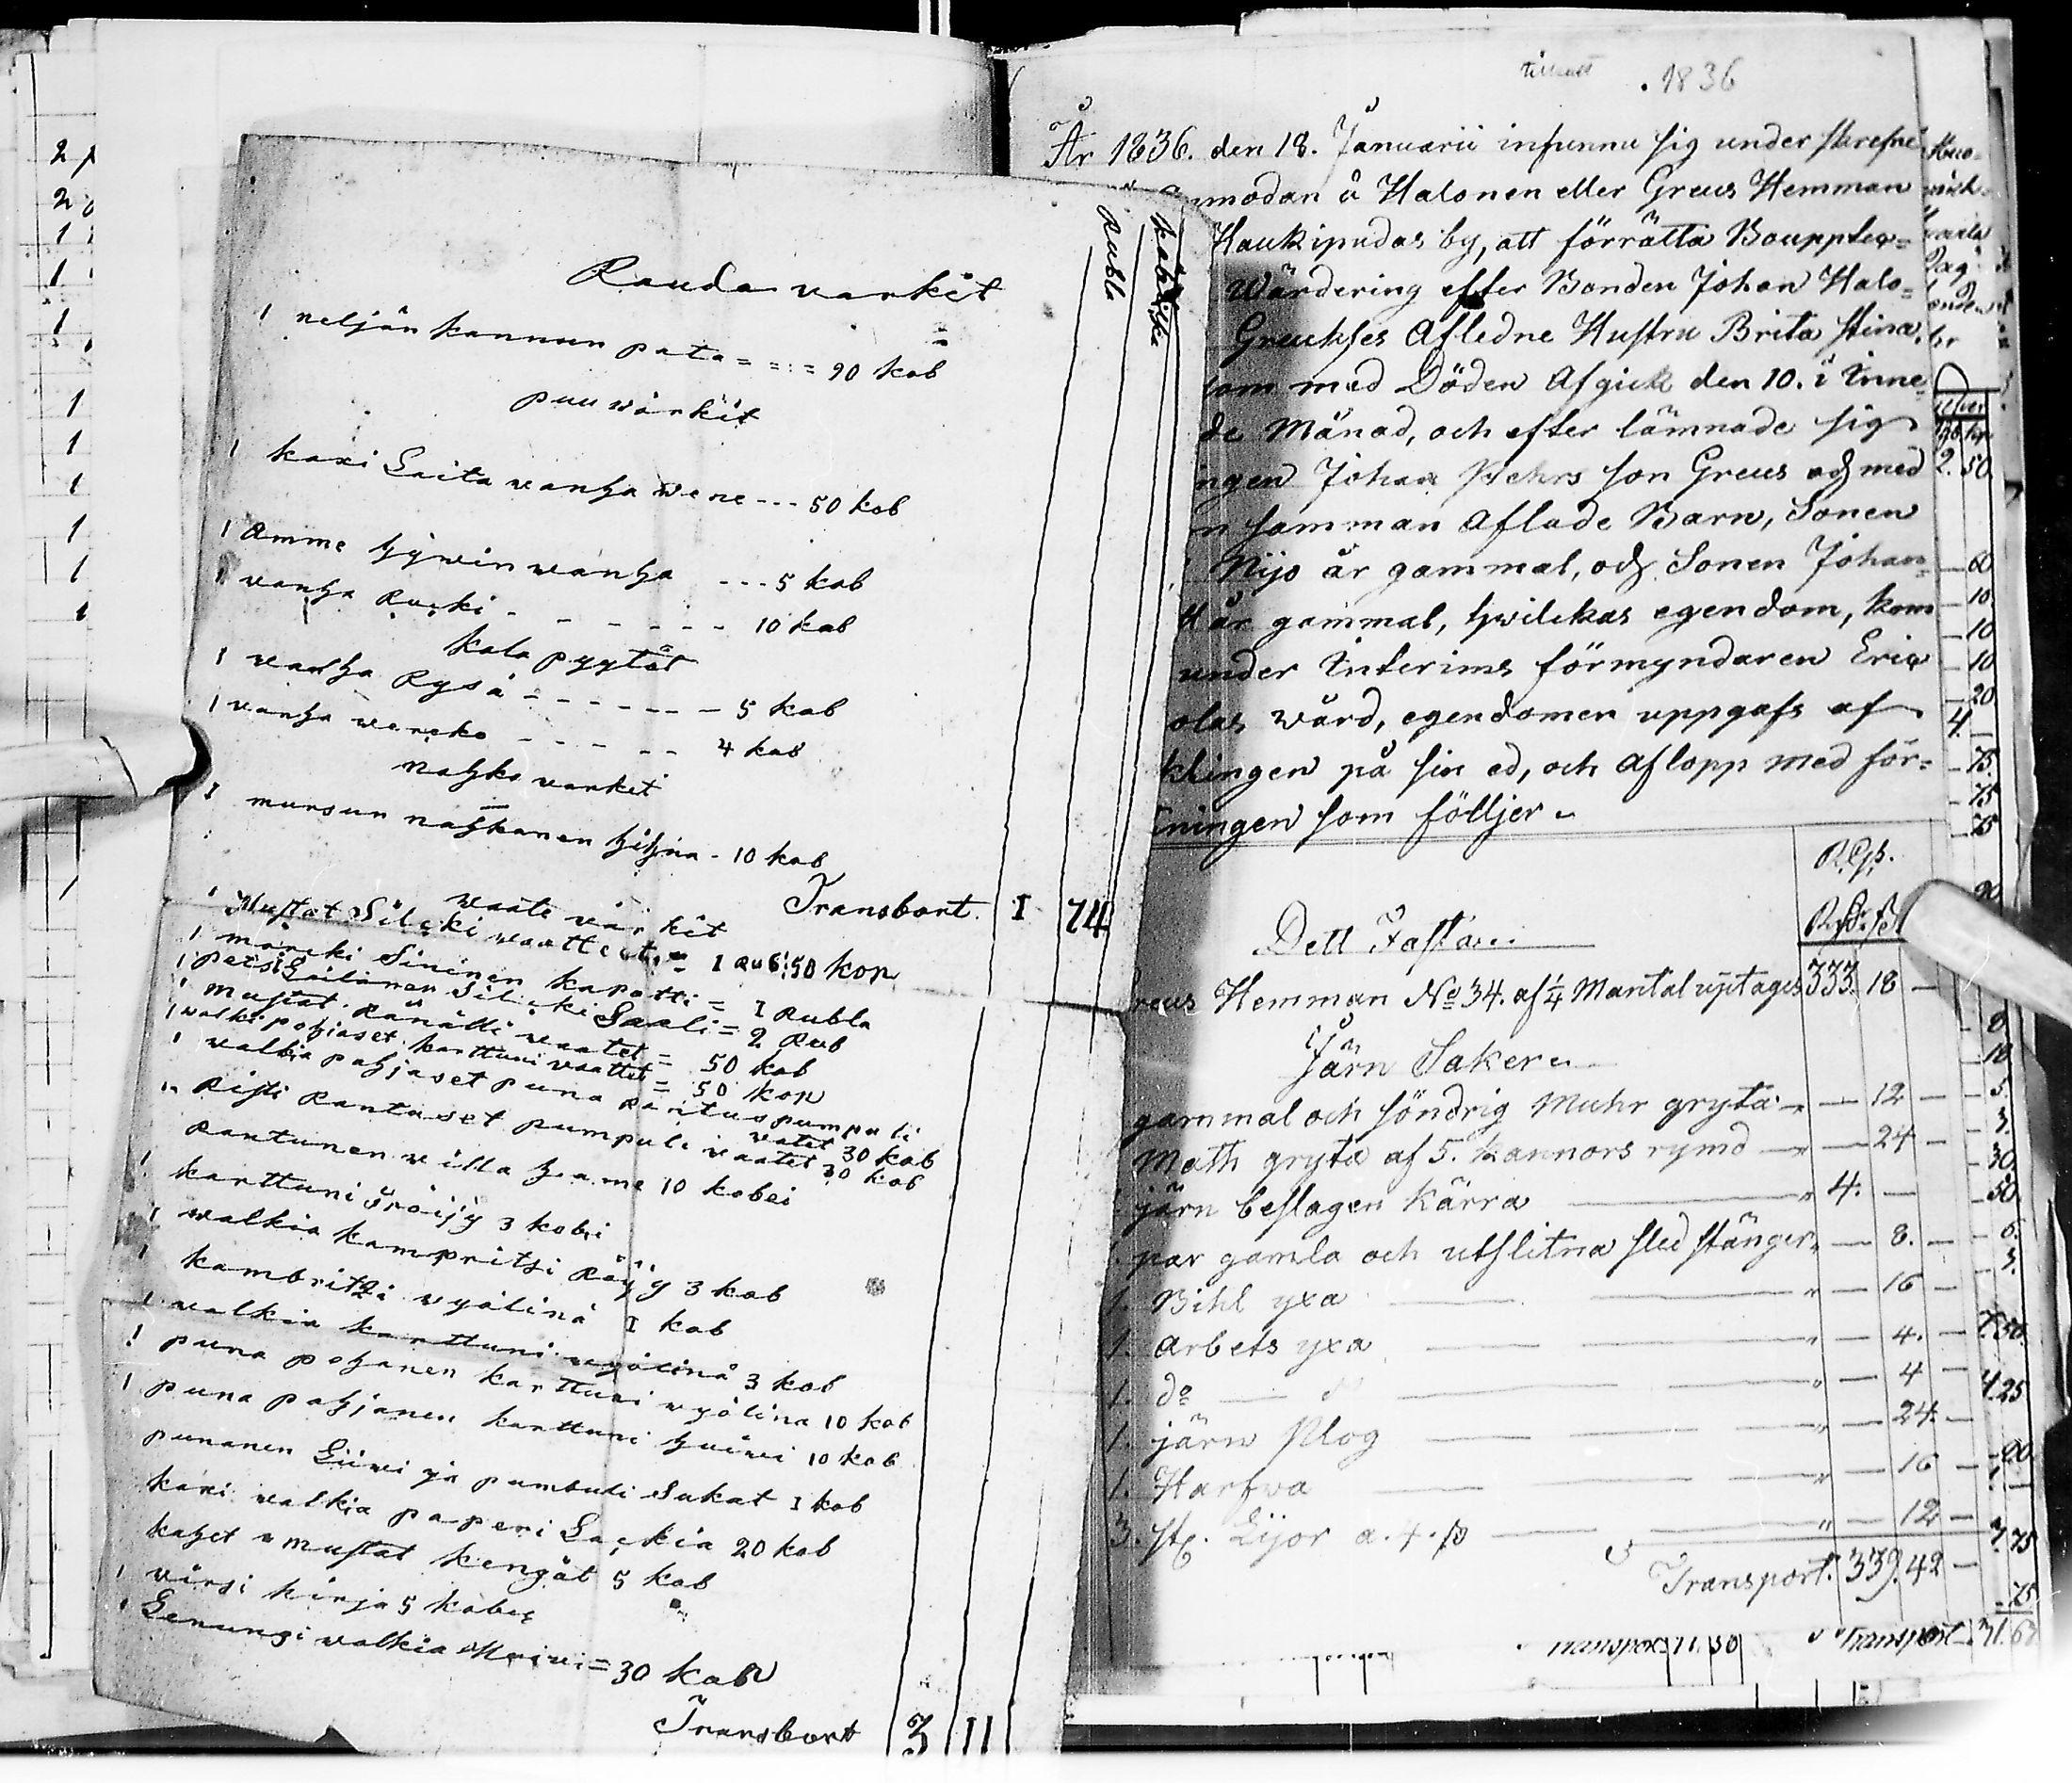 Rubla
kabeikka
Rauda varkit
1 neljän kannun pata = = : = 90 kob
puu wärkit
1 kaxi Laita wanha wene --- 50 kob
1 Amme hywin wanha --- 5 kob
1 vanha Rucki - - - - - - 10 kob
kala pyytät
1 vanha Rysä - - - - - - 5 kob
1 vanha wercko - - - - - 4 kob
nahka varkit
1 mursun nahkanen hihna - 10 kob
Transbort. I 74
waate värkit
1 Mustat Silcki waattet = 1 Rub: 50 kop
1 mörcki Sininen kapotti = I Rubla
1 persiLäilänen Silicki Saali = 2 Rub
1 Mustat Ränätti waatet = 50 kob
1 walki pohjaset karttuni waattet = 50 kop
1 valkia pohjaset puna Raitus pumpuli
vatet 30 kob
" Risti Rantuset pumpuli vaatet 30 kob
Rantunen willa hame 10 kobei
1 karttuni Tröijy 3 kobei
1 walkia kampritsi Röijy 3 kob
1 kambritzi wyölinä I kob
1 valkia karttuni wyölinä 3 kob
1 puna pohjanen karttuni wyölina 10 kob
1 puna pohjanen karttuni huiwi 10 kob
punanen Liiwi ja pumbuli Sukat I kob
kaxi walkia paperi Lackia 20 kob
kahet mustat kengät 5 kob
1 virsi kirja 5 kobei
1 Genungi walkia = 30 kob
Transbort 3 11
1836
År 1836. den 18. Januarii infunno sig under skrefne
å Halonen eller Greus Hemman
Haukipudas by, att förrätta Bouppte=
Wärdering efter Bonden Johan Halo=
Afledne Hustru Brita Stina,
som med Döden Afgick den 10. i Inne
de Månad, och efter lämnade sig
ngen Johan Pehrs son Greus och med
n samman aflade Barn, Sonen
Nijo år gammal, och Sonen Johan=
tt år gammal, hwilckas egendom, kom
under Interims förmyndaren Eric
olas wård, egendomen uppgafs af
klingen på sin ed, och aflopp med för=
ningen som följer
Dett Fasta
reus Hemman No 34. af 1/4 Mantal uptages 333. 18 —
Järn Saker
gammal och söndrig Muhr gryta — 12 —
Math gryta af 5. kannors rymd — 24 —
järn beslagen kärra — 4. —
par gamla och utslitna sled stänger — 8. —
1. Bihl yxa — 16 —
1. Arbets yxa — 4. —
1. do — 4 —
1. järn Plog — 24. —
1. Harfwa — 16 —
3. st. Lijor a. 4. — 12 —
Transport. 339. 42 —
Transport 31. 67
2. 50.